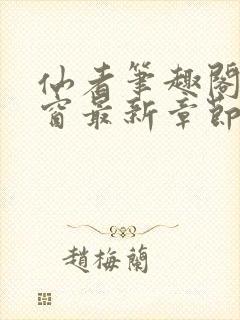 仙者筆趣閣
窗最新章節
趙梅蘭